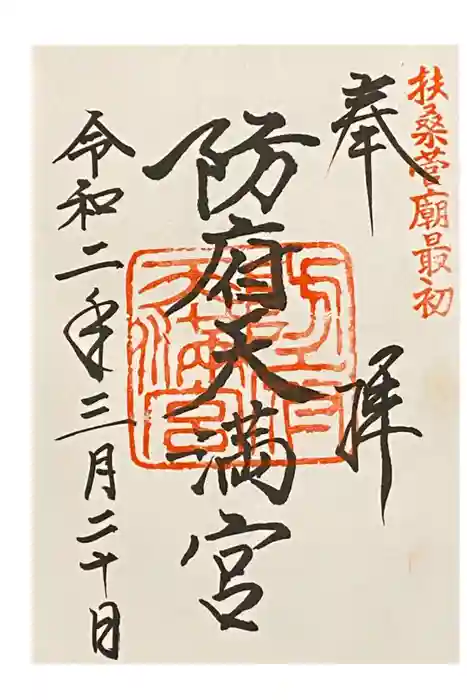 扶桑菅廟最初
奉拝
防府天満宮
令和二年三月二十日